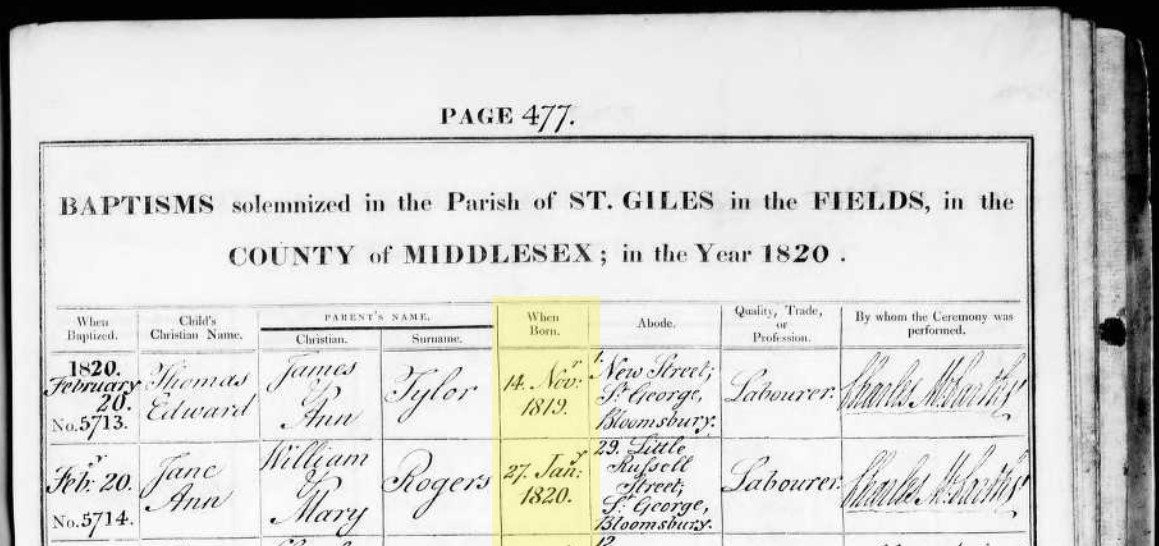 PAGE 477.
BAPTISMS solemnized in the Parish of ST. GILES in the FIELDS, in the
COUNTY of MIDDLESEX; in the Year 1820.
When Baptized.
Child's Christian Name.
PARENT'S NAME.
Christian.
Surname.
When Born.
Abode.
Quality, Trade, or Profession.
By whom the Ceremony was performed.
1820.
February
20.
No. 5713.
Thomas
Edward
James
&
Ann
Tylor
14. Novr:
1819.
1. New Street;
St. George,
Bloomsbury.
Labourer.
Charles
Febr. 20.
No. 5714.
Jane
Ann
William
&
Mary
Rogers
27. Jany:
1820.
29. Little
Russell
Street;
St. George,
Bloomsbury.
Labourer.
Charles
12